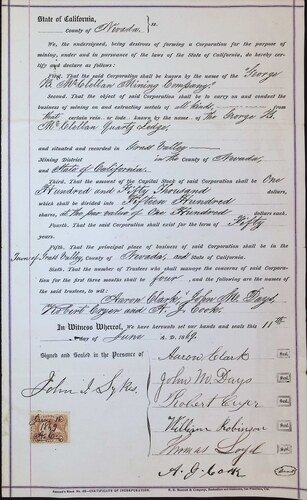 State of California,
County of Nevada, } ss.
We, the undersigned, being desirous of forming a Corporation for the purpose of
mining, under and in pursuance of the laws of the State of California, do hereby
certify and declare as follows:
First. That the said Corporation shall be known by the name of the George
B. McClellan Mining Company.
Second. That the object of said Corporation shall be to carry on and conduct the
business of mining on and extracting metals of all kinds, from
that certain vein or lode known by the name of The George B.
McClellan Quartz Ledge,
and situated and recorded in Grass Valley
Mining District in the County of Nevada,
and State of California.
Third. That the amount of the Capital Stock of said Corporation shall be One
Hundred and Fifty Thousand dollars,
which shall be divided into Fifteen Hundred
shares, at the par value of One Hundred dollars each.
Fourth. That the said Corporation shall exist for the term of Fifty
years.
Fifth. That the principal place of business of said Corporation shall be in the
Town of Grass Valley, County of Nevada, and State of California.
Sixth. That the number of Trustees who shall manage the concerns of said Corpora-
tion for the first three months shall be four, and the following are the names
of the said trustees, to wit:
Aaron Clark, John M. Days,
Robert Coyer and A. J. Cook.
In Witness Whereof, We have hereunto set our hands and seals this 11th
day of June A. D. 1869.
Signed and Sealed in the Presence of
John I Sykes
Aaron Clark Seal
John M. Days Seal
Robert Coyer Seal
William Robinson Seal
Thomas Loyd Seal
A. J. Cook Seal
June 11
1869
CERTIFICATE OF INCORPORATION.